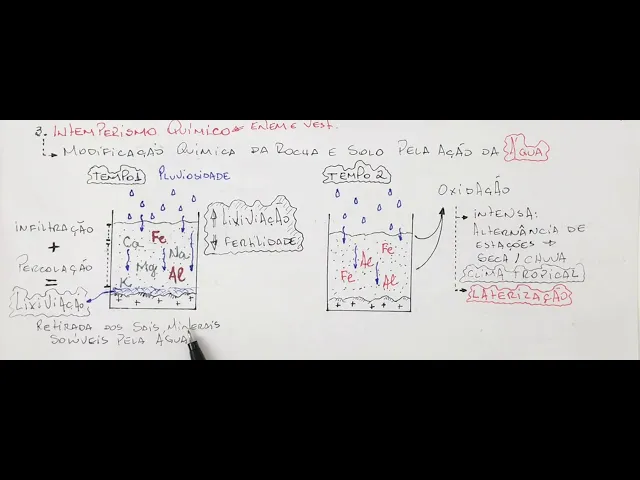 3. INTEMPERISMO QUÍMICO ENEM E VEST.
MODIFICAÇÃO QUÍMICA DA ROCHA E SOLO PELA AÇÃO DA ÁGUA
TEMPO 1
PLUVIOSIDADE
INFILTRAÇÃO
+
PERCOLAÇÃO
=
LIXIVIAÇÃO
Ca Fe
Na
Mg
Al
K
+ + + + +
↑ LIXIVIAÇÃO
↓ FERTILIDADE
RETIRADA DOS SAIS MINERAIS
SOLÚVEIS PELA ÁGUA
TEMPO 2
Fe
Al
Fe
Al
+ + + + +
OXIDAÇÃO
INTENSA:
ALTERNÂNCIA DE
ESTAÇÕES →
SECA / CHUVA
CLIMA TROPICAL
LATERIZAÇÃO